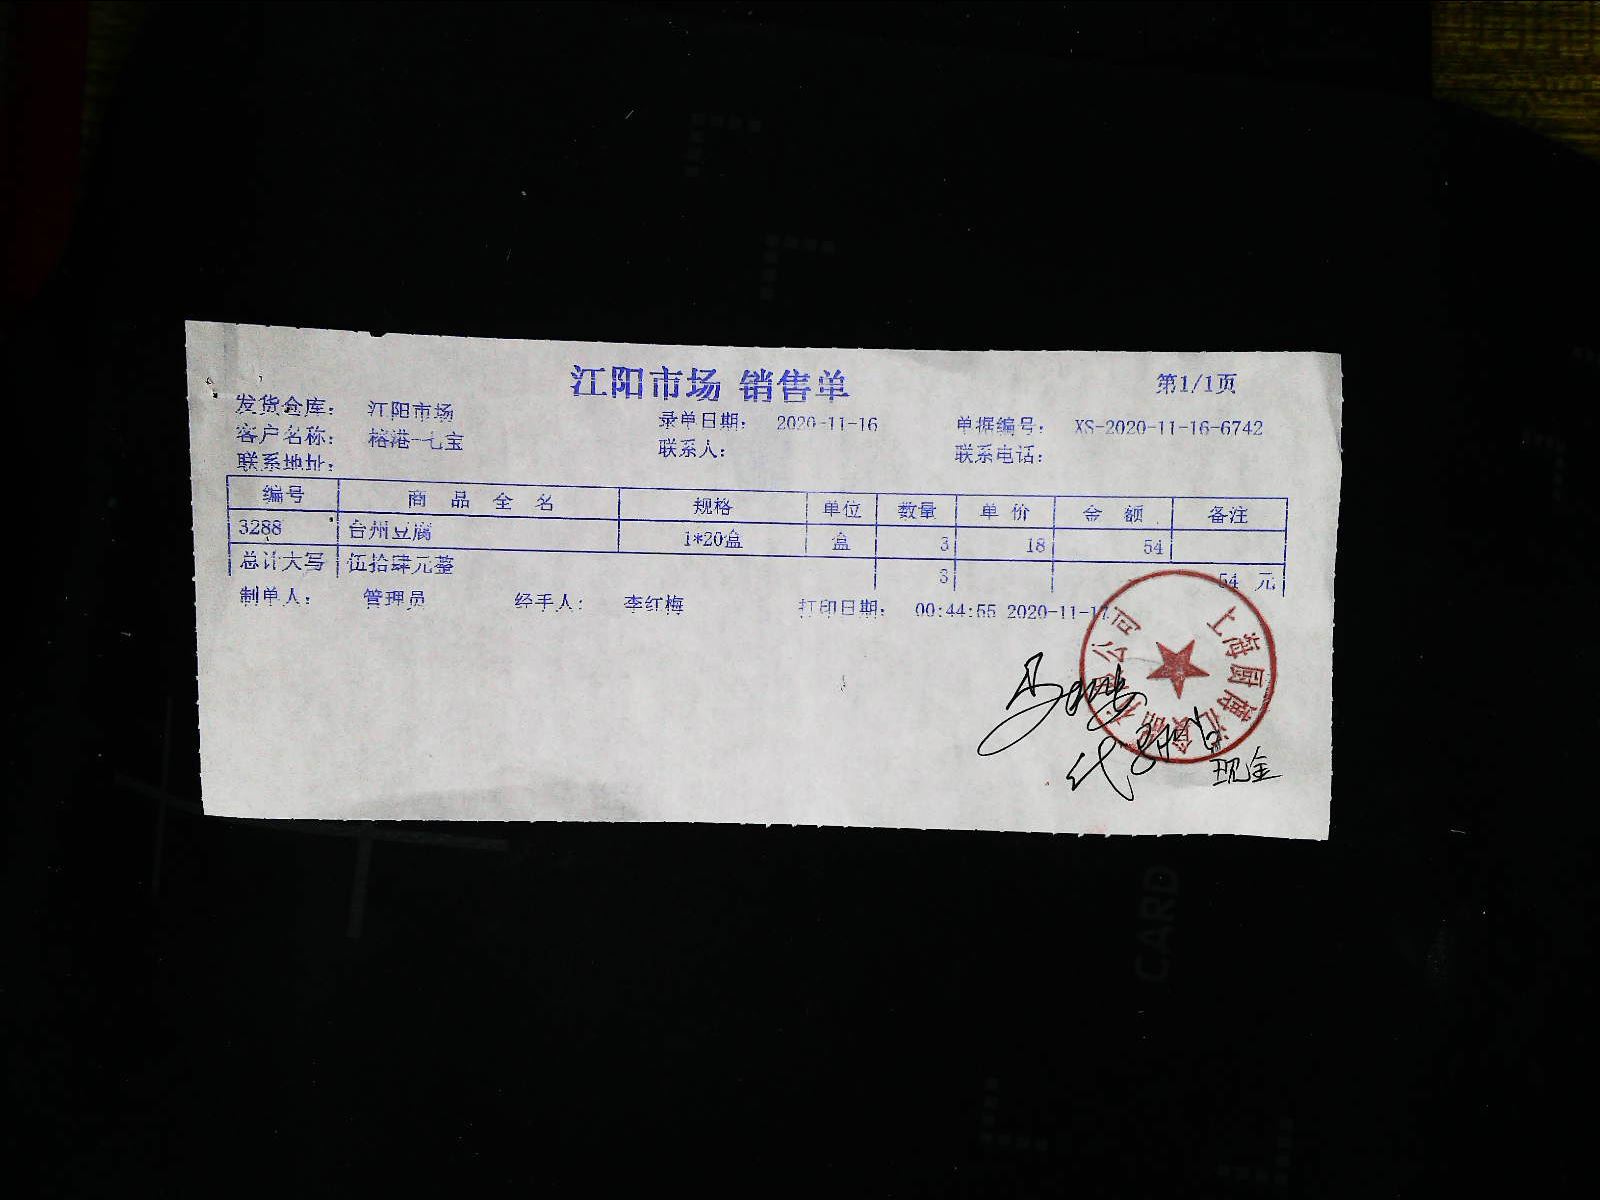 江阳市场 销售单
第1/1页
发货仓库： 江阳市场 录单日期： 2020-11-16 单据编号： XS-2020-11-16-6742
客户名称： 榕港-七宝 联系人： 联系电话：
联系地址：
编号 商品全名 规格 单位 数量 单价 金额 备注
3288 台州豆腐 1*20盒 盒 3 18 54
总计大写 伍拾肆元整 3 54 元
制单人： 管理员 经手人： 李红梅 打印日期： 00:44:55 2020-11-17
现金
CARD